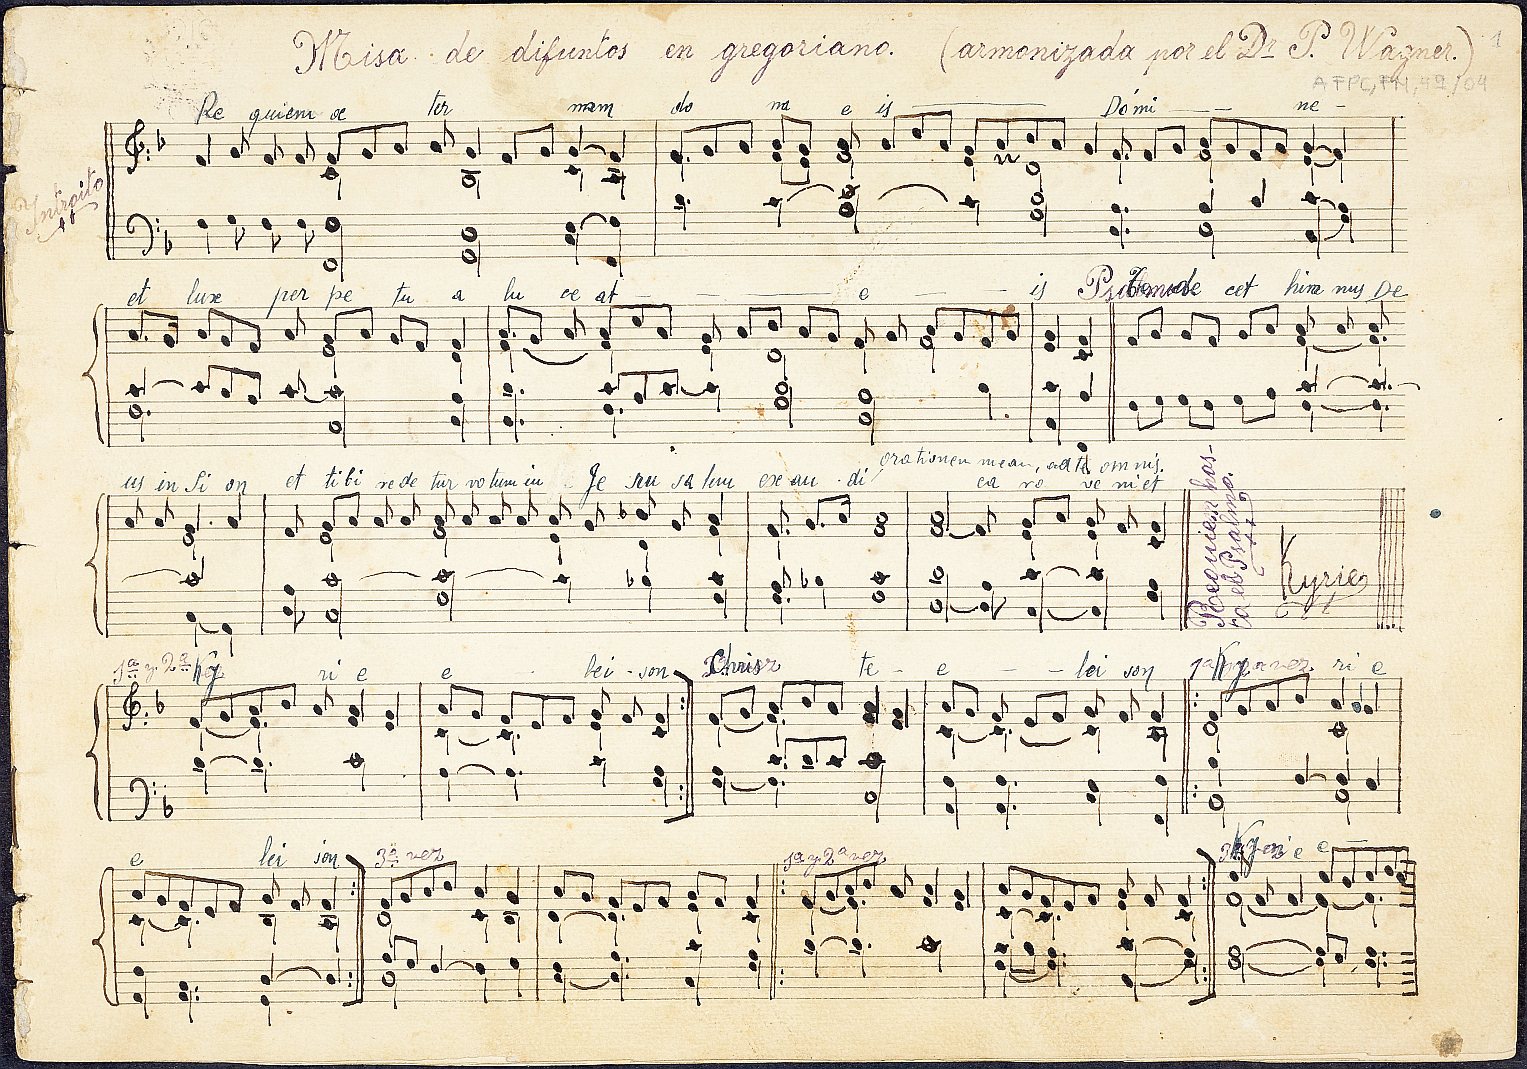 Misa de difuntos en gregoriano. (armonizada por el Dr. P. Wagner.) 1
AFPC, FH, 49/04
Introito
Re quiem æ ter nam do na e is Dómi ne -
et lux per pe tu a lu ce at e is Psalmus Te de cet him nus De
us in Si on et ti bi re de tur votum in Je ru sa lem ex au - di orationem meam, ad te omnis.
ca ro ve ni et
Requiem has-
ta el Psalmo.
Kyrie
1ª y 2ª Ky ri e e lei - son Chris te - e lei son 1ª Ky vez ri e
e lei son 3ª vez 1ª y 2ª vez 3ª Ky ri e e